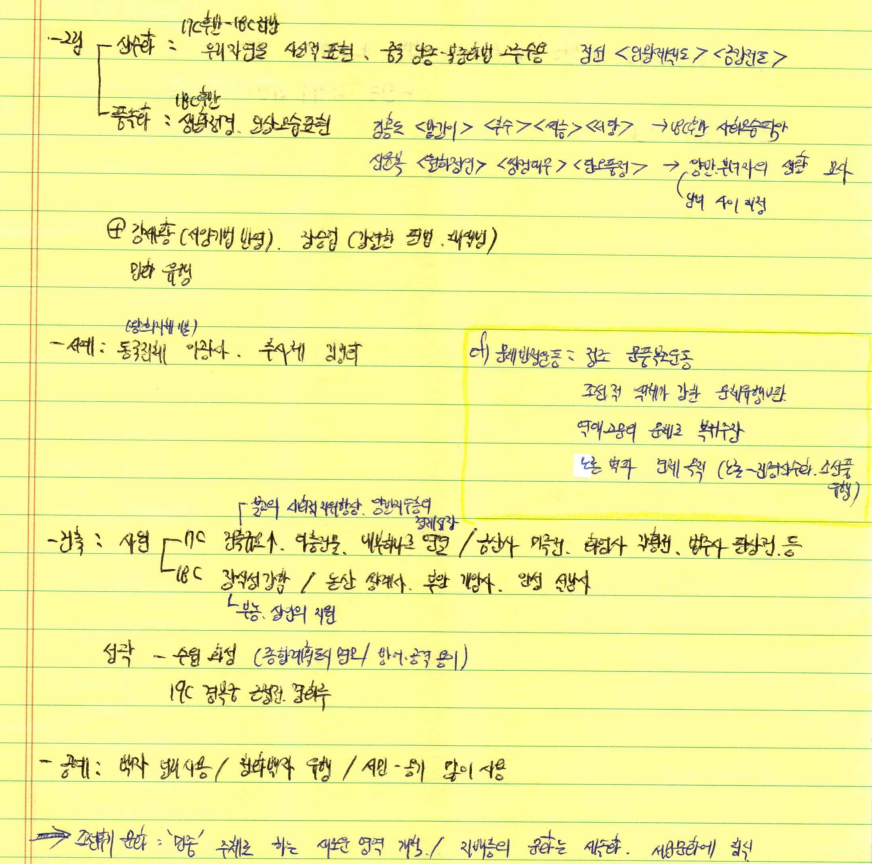 17C후반-18C전반
-그림 산수화: 우리자연을 사실적 표현, 중국 남종·북종화법 고루수용 정선 <인왕제색도> <금강전도>
18C후반
풍속화: 생활정경, 일상모습표현 김홍도 <밭갈이> <추수> <씨름> <서당> → 18C후반 사회모습
신윤복 <월하정인> <단오풍정> → 양반·부녀자의 생활 묘사
남녀 사이 애정
⊕ 강세황 (서양기법 반영). 장승업 (강렬한 필법, 채색법)
민화 유행
-서예: 동국진체 이광사. 추사체 김정희
cf) 문체반정운동: 정조 문풍복고운동
조선적 색채가 강한 문체유행
고문의 문체로 복귀주장
노론 학자 견제 목적 (노론-진경산수화. 조선풍 유행)
불교의 사회적 지위향상, 양반지주층의 경제성장
-건축: 사원 17C 건축규모↑, 다층건물, 내부하나로 연결 / 금산사 미륵전, 화엄사 각황전, 법주사 팔상전, 등
18C 장식성강함 / 논산 쌍계사. 부안 개암사. 안성 석남사
부농, 상인의 지원
성곽 - 수원 화성 (종합계획도시 / 방어·공격 용이)
19C 경복궁 근정전. 경회루
- 공예: 백자 널리사용 / 청화백자 유행 / 서민-옹기 많이 사용
⇒ 조선후기 문화: '민중' 주체로 하는 새로운 영역 개척. / 지배층의 문화는 서민문화에